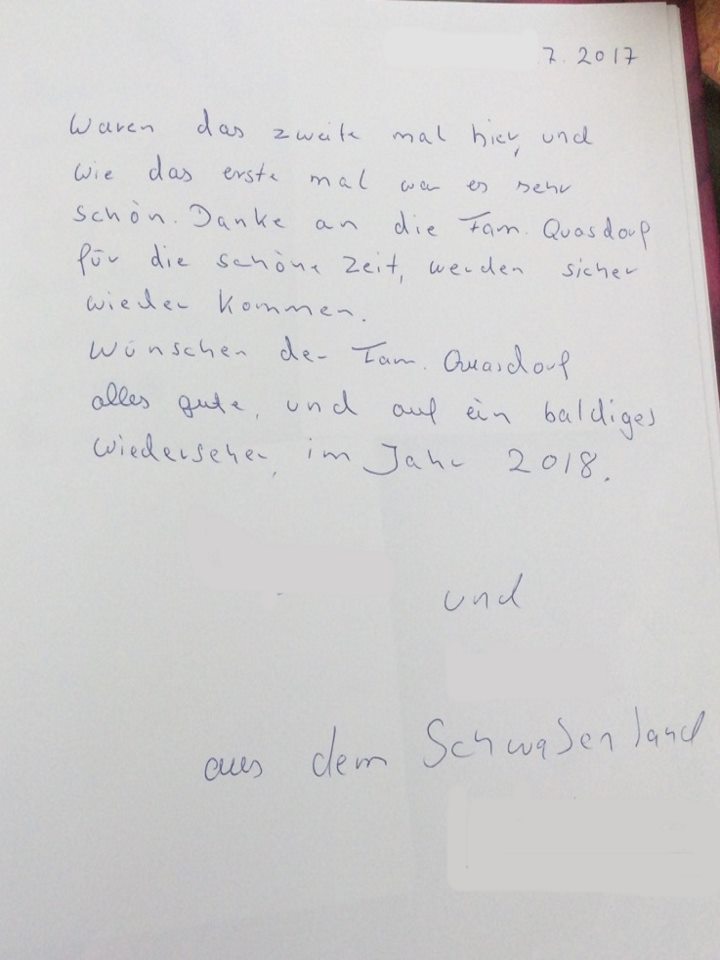 7. 2017
Waren das zweite mal hier, und
wie das erste mal war es sehr
schön. Danke an die Fam. Quasdorf
für die schöne Zeit, werden sicher
wieder kommen.
Wünschen der Fam. Quasdorf
alles gute, und auf ein baldiges
Wiedersehen, im Jahr 2018.
und
aus dem Schwabenland